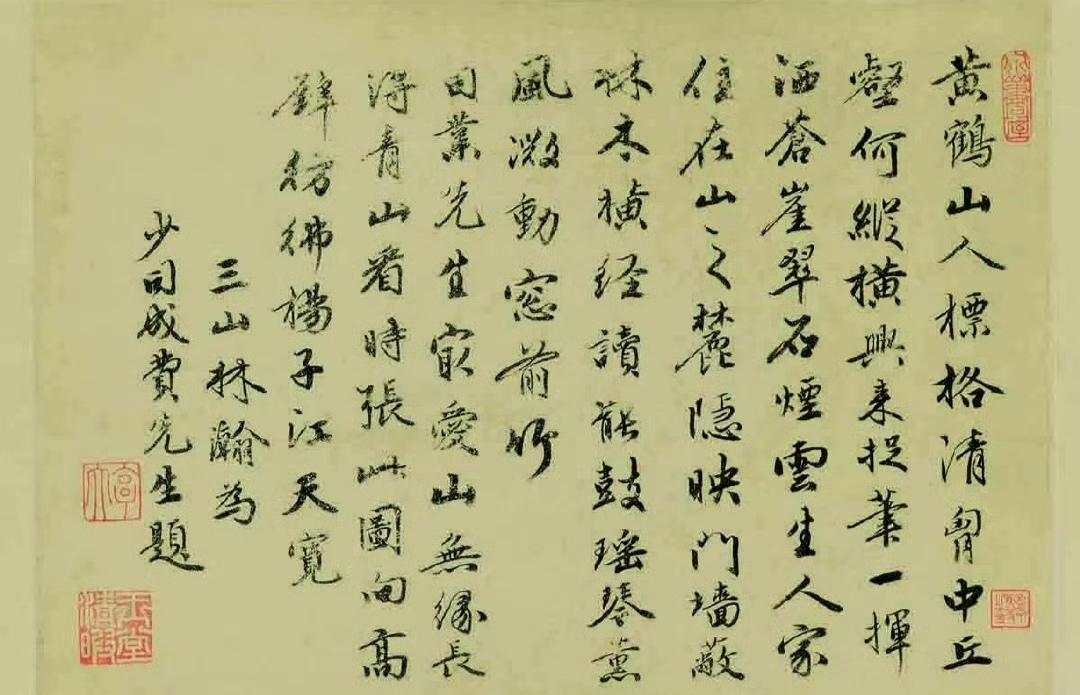 黄鶴山人標格清胷中丘
壑何縱横興来捉筆一揮
洒蒼崖翠石煙雲生人家
住在山之麓隐映門墙蔽
林木横経讀罷鼓瑶琴薰
風激動窓前竹
司業先生寂愛山無縁長
得青山看時張此圖向高
壁彷彿楊子江天寛
三山林瀚為
少司成費先生題
玉堂清暇